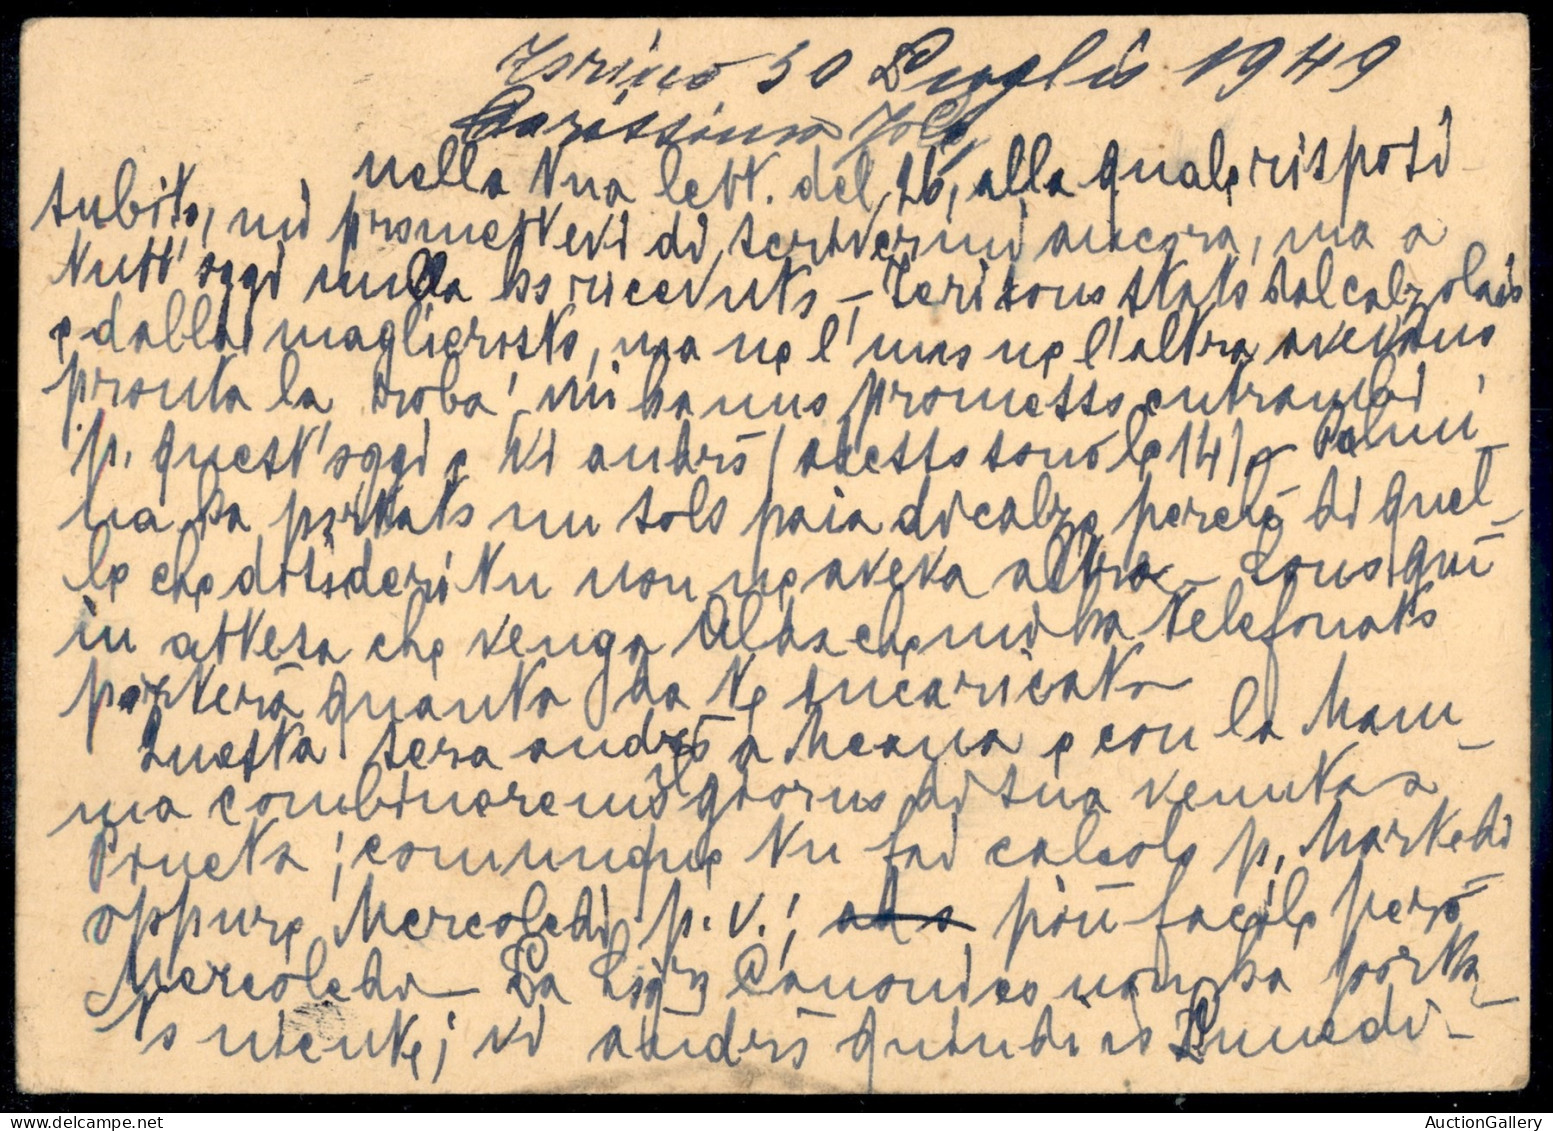 Torino 30 Luglio 1949
Carissima
nella tua lett. del 26, alla quale risposi
subito, mi promettevi di scrivermi ancora, ma a
tutt'oggi nulla ho ricevuto – Ieri sono stato dal calzolaio
e dalla maglierista, ma ne l'uno ne l'altra avevano
pronta la roba; mi hanno promesso entrambi
p. quest'oggi e vi andrò (adesso sono le 14) –
ha portato un solo paia di calze perchè di quel-
le che desideri tu non ne aveva altra – Sono quì
in attesa che venga Alda che mi ha telefonato
porterà quanto ha te incaricato
Questa sera andrò a Meana e con la Mam-
ma combineremo il giorno di tua venuta a
comunque tu fai calcolo p. Martedi
oppure Mercoledi p. v.; più facile però
Mercoledi – La Sig.ra Canonico non ha porta-
to niente; vi andrò quindi io Lunedi –
AuctionGallery